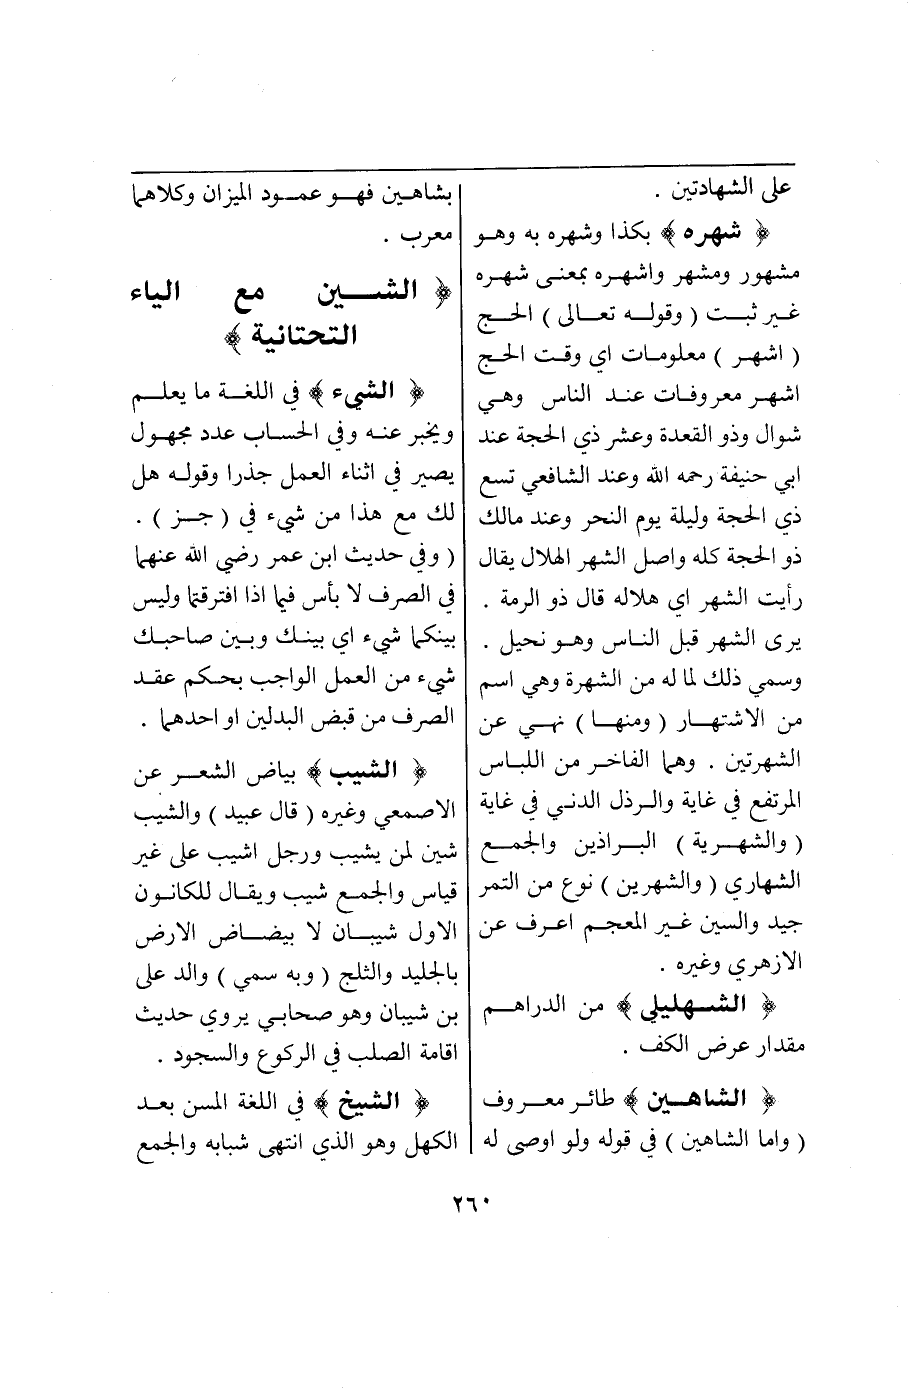 على الشهادتين .
﴿ شهره ﴾ بكذا وشهره به وهو
مشهور ومشهر واشهره بمعنى شهره
غير ثبت ( وقوله تعالى ) الحج
( اشهر ) معلومات اي وقت الحج
اشهر معروفات عند الناس وهي
شوال وذو القعدة وعشر ذي الحجة عند
ابي حنيفة رحمه الله وعند الشافعي تسع
ذي الحجة وليلة يوم النحر وعند مالك
ذو الحجة كله واصل الشهر الهلال يقال
رأيت الشهر اي هلاله قال ذو الرمة .
يرى الشهر قبل الناس وهو نحيل .
وسمي ذلك لما له من الشهرة وهي اسم
من الاشتهار ( ومنها ) نهي عن
الشهرتين . وهما الفاخر من اللباس
المرتفع في غاية والرذل الدني في غاية
( والشهرية ) البراذين والجمع
الشهاري ( والشهرين ) نوع من التمر
جيد والسين غير المعجم اعرف عن
الازهري وغيره .
﴿ الشهليلي ﴾ من الدراهم
مقدار عرض الكف .
﴿ الشاهين ﴾ طائر معروف
( واما الشاهين ) في قوله ولو اوصى له
بشاهين فهو عمود الميزان وكلاهما
معرب .
﴿ الشين مع الياء
التحتانية ﴾
﴿ الشيء ﴾ في اللغة ما يعلم
ويخبر عنه وفي الحساب عدد مجهول
يصير في اثناء العمل جذرا وقوله هل
لك مع هذا من شيء في ( جز ) .
( وفي حديث ابن عمر رضي الله عنهما
في الصرف لا بأس فيما اذا افترقتما وليس
بينكما شيء اي بينك وبين صاحبك
شيء من العمل الواجب بحكم عقد
الصرف من قبض البدلين او احدهما .
﴿ الشيب ﴾ بياض الشعر عن
الاصمعي وغيره ( قال عبيد ) والشيب
شين لمن يشيب ورجل اشيب على غير
قياس والجمع شيب ويقال للكانون
الاول شيبان لا بيضاض الارض
بالجليد والثلج ( وبه سمي ) والد على
بن شيبان وهو صحابي يروي حديث
اقامة الصلب في الركوع والسجود .
﴿ الشيخ ﴾ في اللغة المسن بعد
الكهل وهو الذي انتهى شبابه والجمع
٢٦٠